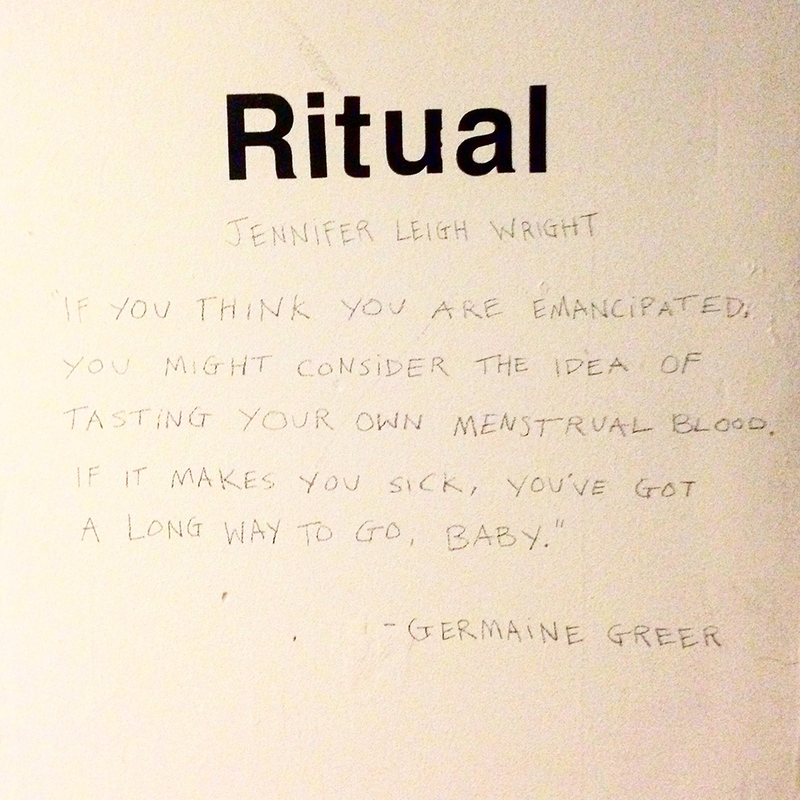 Ritual
JENNIFER LEIGH WRIGHT
"IF YOU THINK YOU ARE EMANCIPATED,
YOU MIGHT CONSIDER THE IDEA OF
TASTING YOUR OWN MENSTRUAL BLOOD.
IF IT MAKES YOU SICK, YOU'VE GOT
A LONG WAY TO GO, BABY."
- GERMAINE GREER